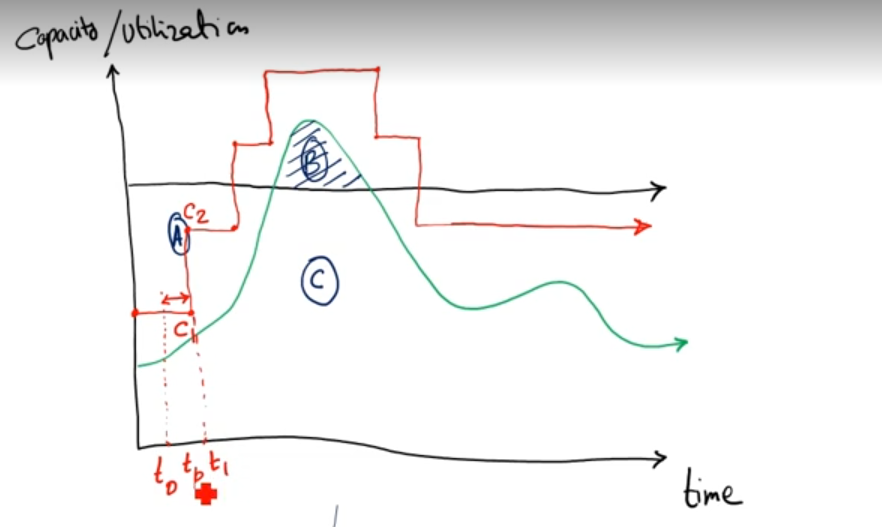 Capacity/Utilization
B
C2
A
C
C1
t0 tp t1
time